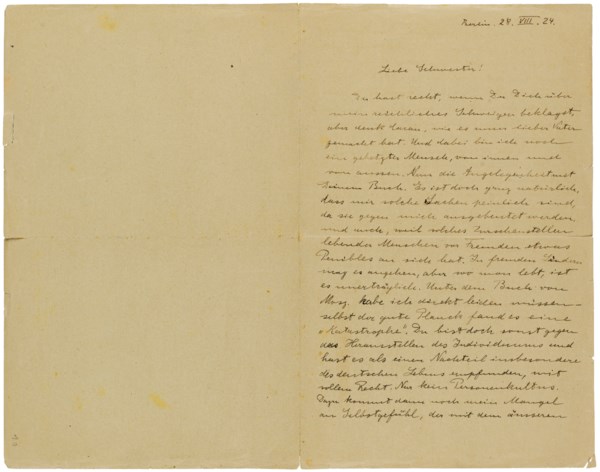 Berlin. 24. VIII. 24.
Liebe Schwester!
Du hast recht, wenn Du Dich über
mein Schweigen beklagst,
aber denk daran, wie es unser lieber Vater
gemacht hat. Und dabei bin ich noch
ein gehetzter Mensch, von innen und
von aussen. Nun die Angelegenheit mit
Deinem Buch. Es ist doch ganz natürlich,
dass mir solche Sachen peinlich sind,
da sie gegen mich ausgebeutet werden
und auch, weil solches Zurschaustellen
lebender Menschen vor Fremden etwas
Penibles an sich hat. In fremden Ländern
mag es angehen, aber wo man lebt, ist
es unerträglich. Unter dem Buch von
Mosz. habe ich direkt leiden müssen -
selbst der gute Planck fand es eine
„Katastrophe". Du bist doch sonst gegen
das Herausstellen des Individuums und
hast es als einen Nachteil insbesondere
des deutschen Lebens empfunden, mit
vollem Recht. Nur kein Personenkultus.
Dazu kommt dann noch mein Mangel
an Selbstgefühl, der mit dem äusseren